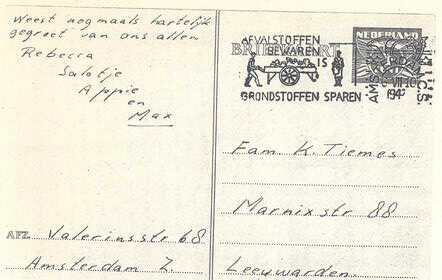 Weest nogmaals hartelijk
gegroet van ons allen
Rebecca
Salotje
Appie
en
Max
AFZ. Valeriusstr 68
Amsterdam Z.
NEDERLAND
AFVALSTOFFEN
BEWAREN
IS
GRONDSTOFFEN SPAREN
Fam K. Tiemes
Marnixstr 88
Leeuwarden.